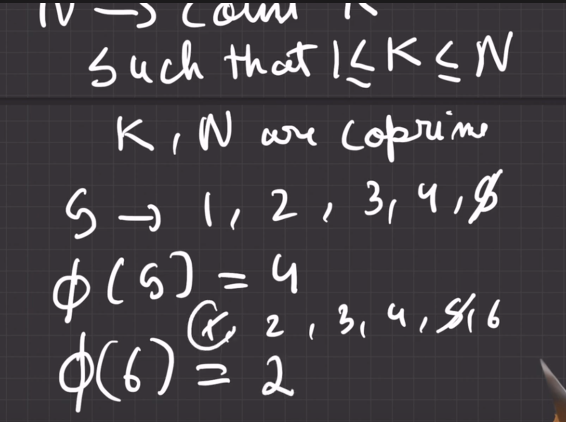 N → Count K
Such that 1 ≤ K ≤ N
K, N are coprime
5 → 1, 2, 3, 4, 5
ϕ(5) = 4
1, 2, 3, 4, 5, 6
ϕ(6) = 2